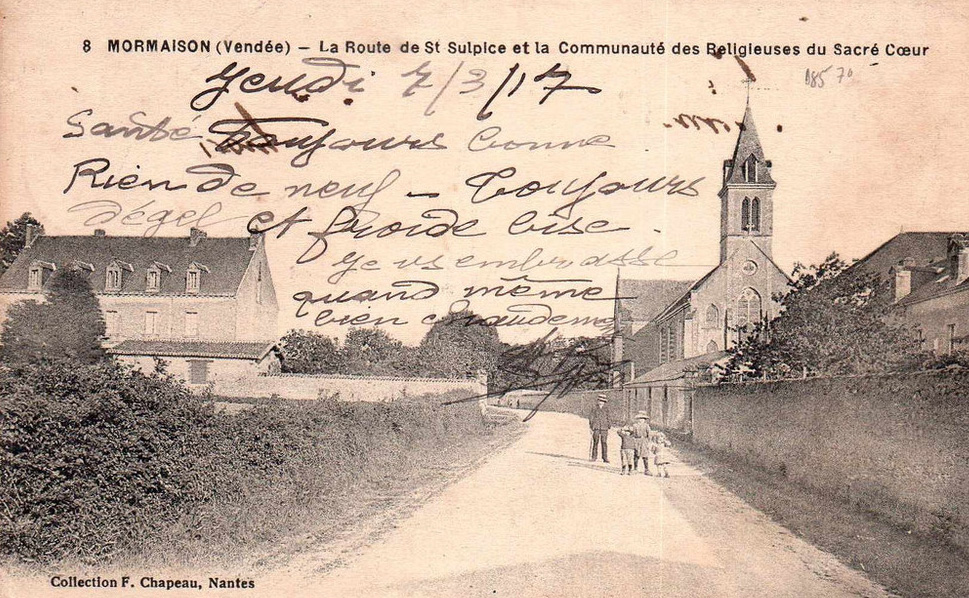 8 MORMAISON (Vendée) – La Route de St Sulpice et la Communauté des Religieuses du Sacré Cœur
Jeudi 7/3/17
Santé toujours bonne
Rien de neuf – Toujours
dégel et froide bise.
Je vs embrasse
quand même
bien chaudemt
Collection F. Chapeau, Nantes